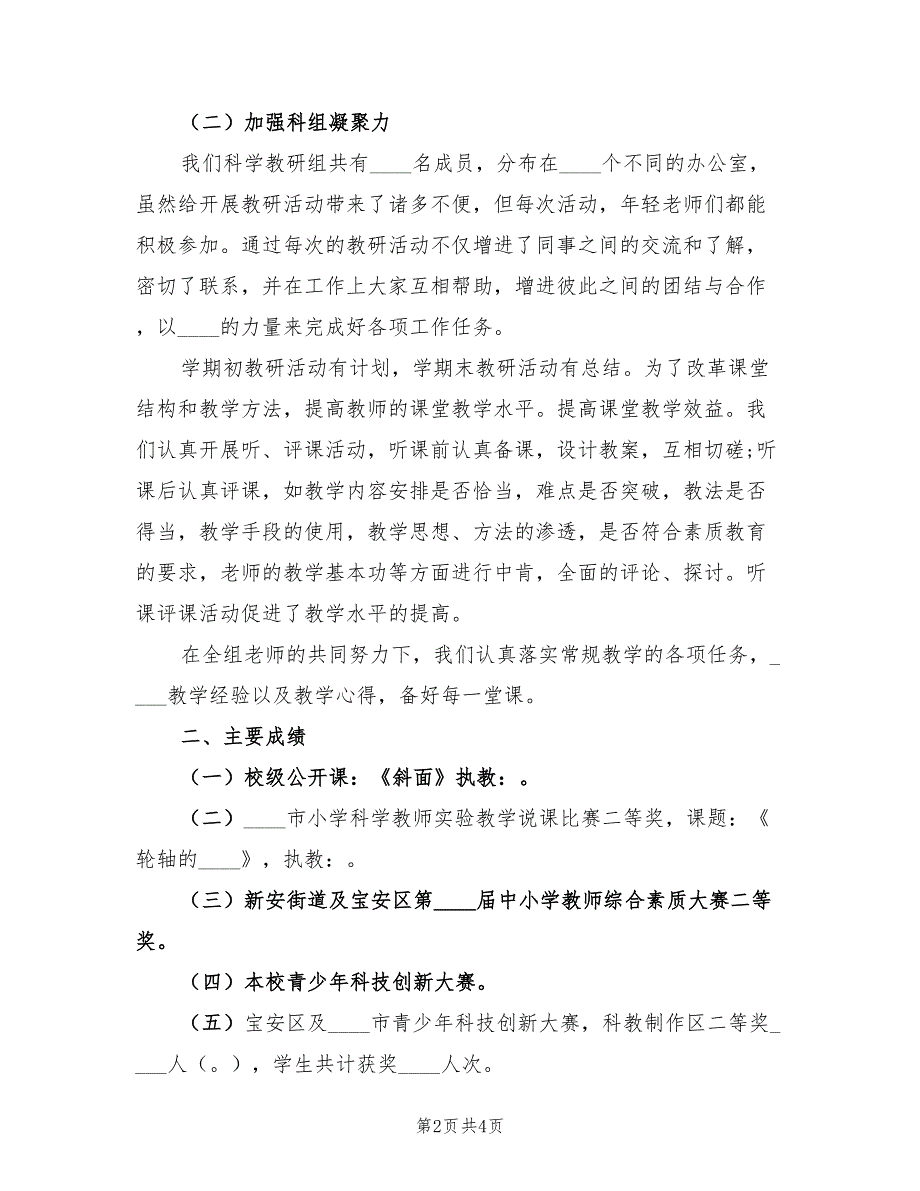 （二）加强科组凝聚力
我们科学教研组共有____名成员，分布在____个不同的办公室，
虽然给开展教研活动带来了诸多不便，但每次活动，年轻老师们都能
积极参加。通过每次的教研活动不仅增进了同事之间的交流和了解，
密切了联系，并在工作上大家互相帮助，增进彼此之间的团结与合作
，以____的力量来完成好各项工作任务。
学期初教研活动有计划，学期末教研活动有总结。为了改革课堂
结构和教学方法，提高教师的课堂教学水平。提高课堂教学效益。我
们认真开展听、评课活动，听课前认真备课，设计教案，互相切磋;听
课后认真评课，如教学内容安排是否恰当，难点是否突破，教法是否
得当，教学手段的使用，教学思想、方法的渗透，是否符合素质教育
的要求，老师的教学基本功等方面进行中肯，全面的评论、探讨。听
课评课活动促进了教学水平的提高。
在全组老师的共同努力下，我们认真落实常规教学的各项任务，_
___教学经验以及教学心得，备好每一堂课。
二、主要成绩
（一）校级公开课：《斜面》执教：。
（二）____市小学科学教师实验教学说课比赛二等奖，课题：《
轮轴的____》，执教：。
（三）新安街道及宝安区第____届中小学教师综合素质大赛二等
奖。
（四）本校青少年科技创新大赛。
（五）宝安区及____市青少年科技创新大赛，科教制作区二等奖_
___人（。），学生共计获奖____人次。
第2页共4页